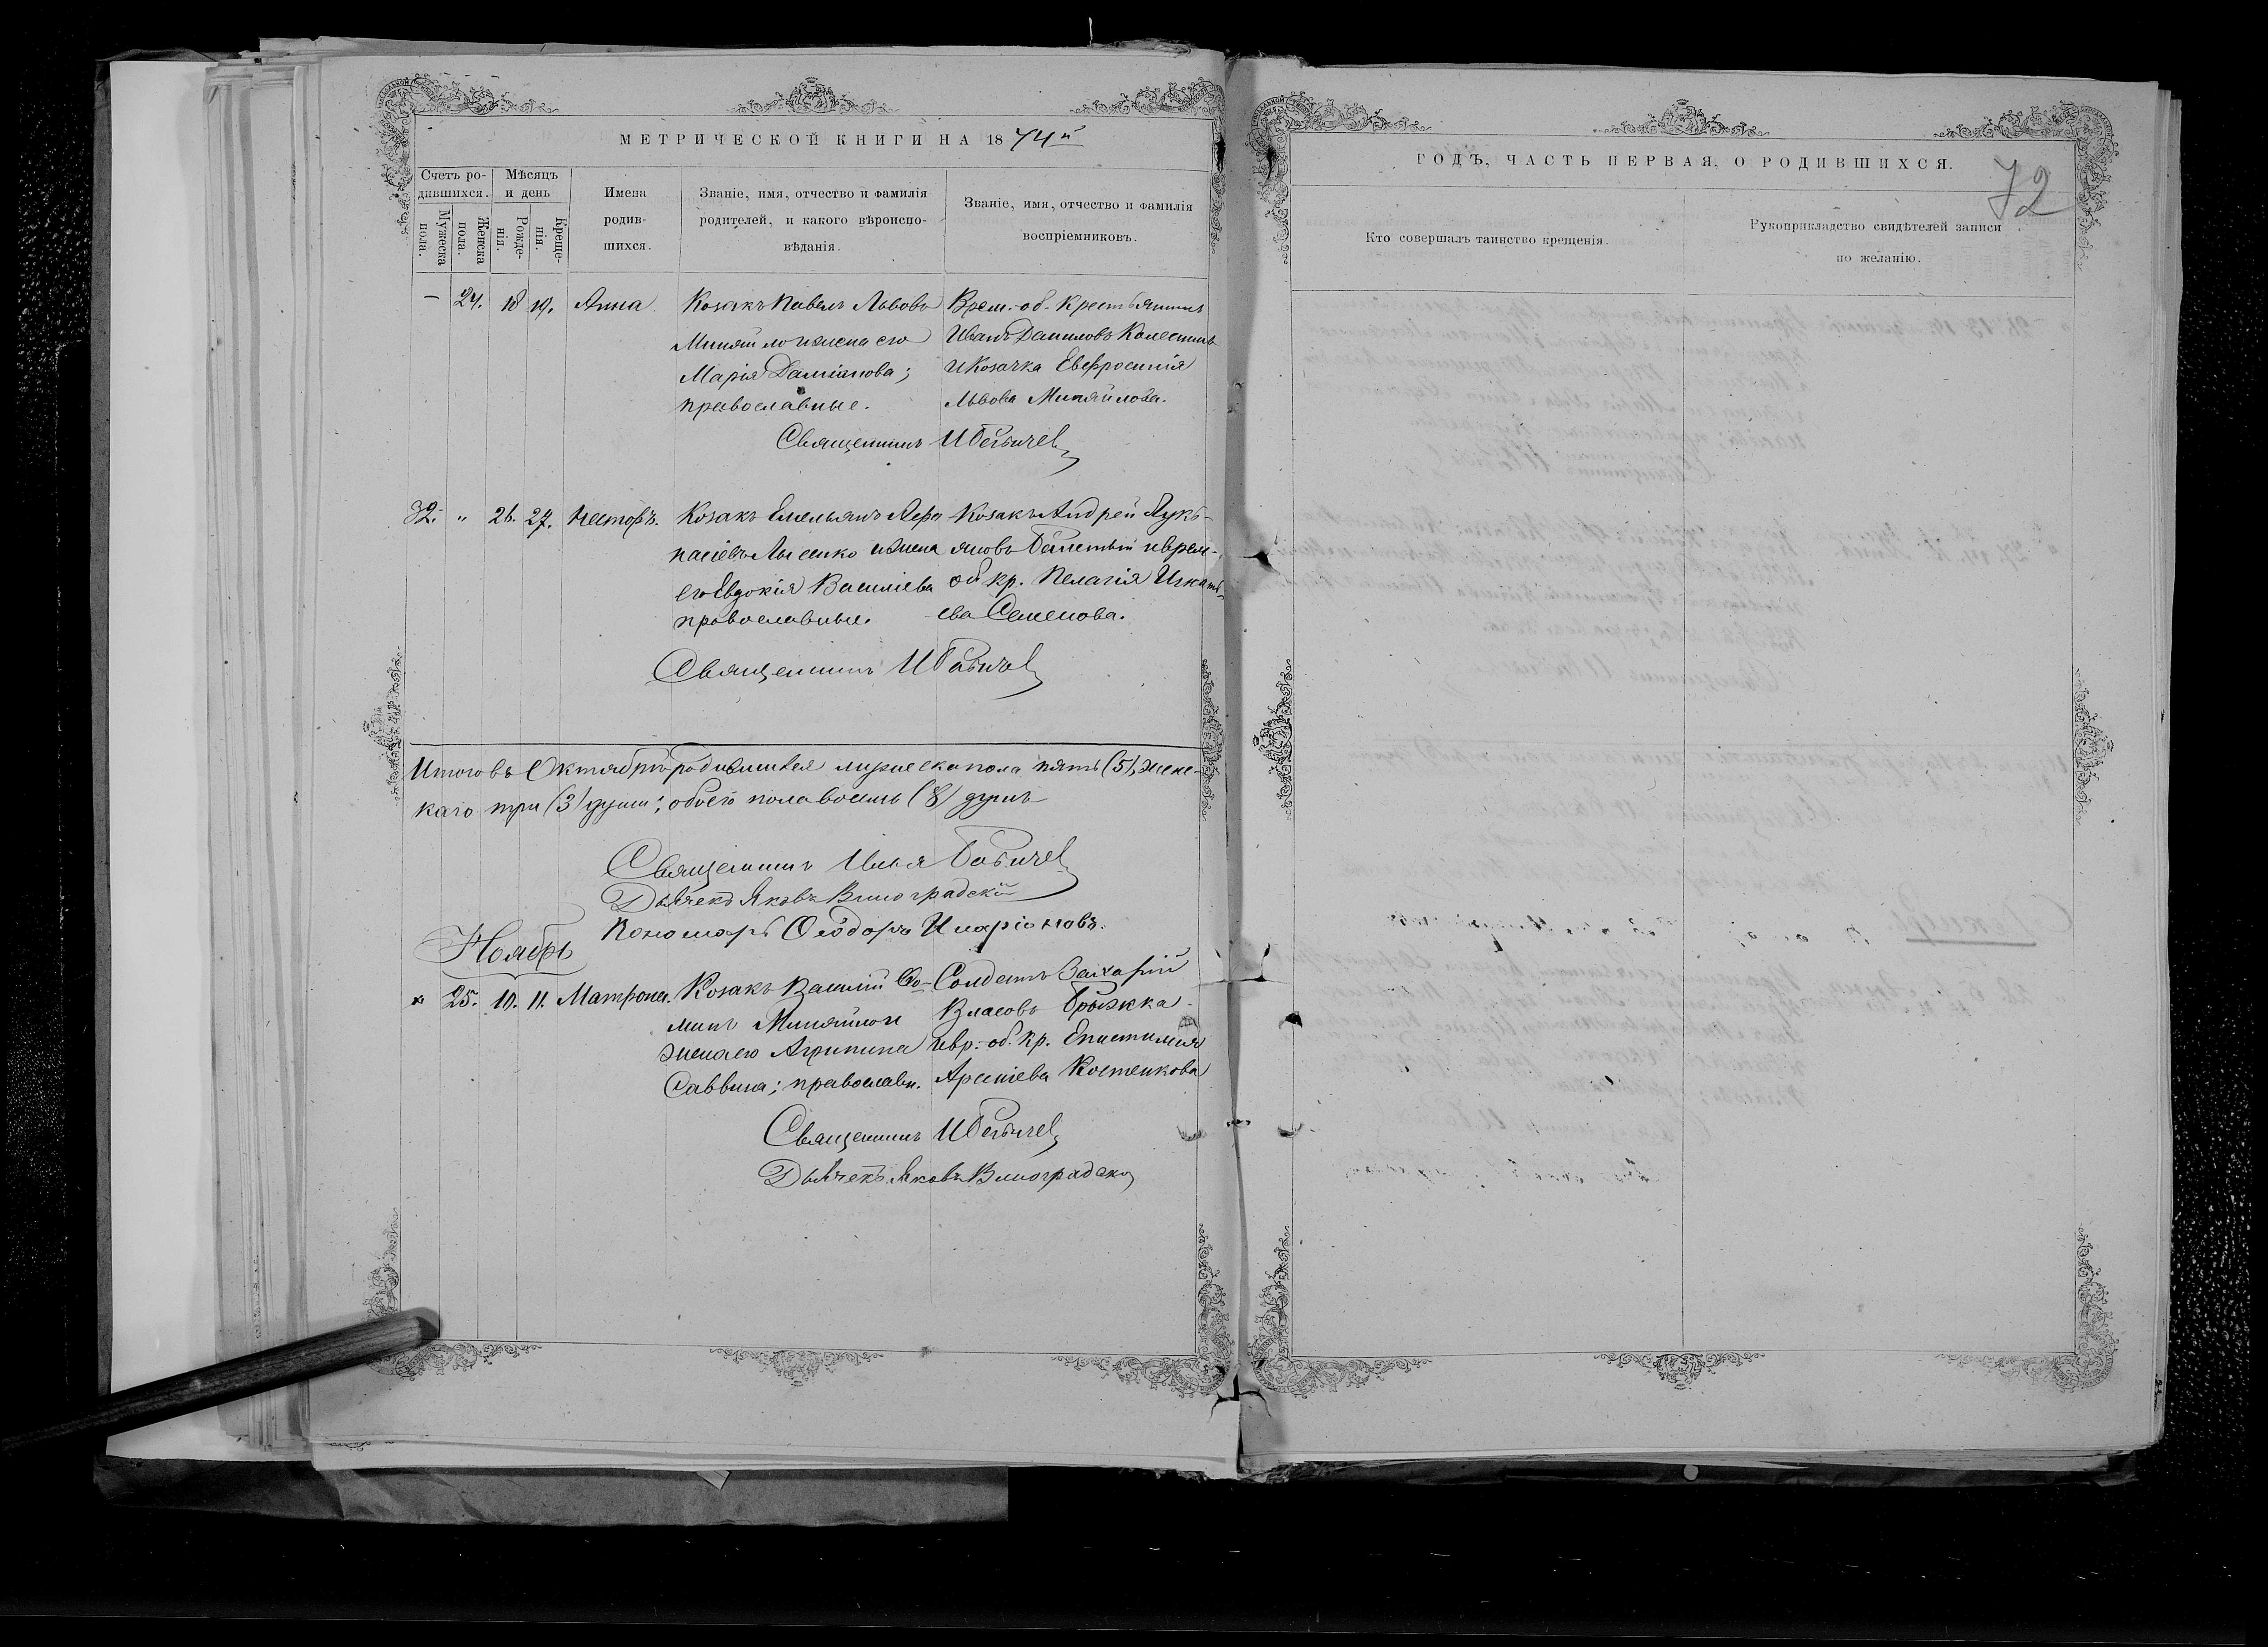 МЕТРИЧЕСКОЙ КНИГИ НА 1874й
Счетъ ро-
дившихся.
Мѣсяцъ
и день
Мужеска
пола.
Женска
пола.
Рожде-
нія.
Креще-
нія.
Имена
родив-
шихся.
Званіе, имя, отчество и фамилія
родителей, и какого вѣроиспо-
вѣданія.
Званіе, имя, отчество и фамилія
воспріемниковъ.
– 24. 18 19. Анна Козакъ Павелъ Львовъ
Миняйло и жена его
Марія Даміанова;
православные.
Врем.-об. Крестьянинъ
Иванъ Даниловъ
и Козачка Евфросинія
Львова Миняйлова.
Священникъ И Бабичев
32. " 26. 27. Несторъ. Козакъ Емельянъ Афа-
насіевъ Лысенко и жена
его Евдокія Василіева
православные.
Козакъ Андрей Лукь-
яновъ и врем.-
об. кр. Пелагія Игнать-
ева Семенова.
Священникъ И Бабичев
Итого въ Октябрѣ родившихся мужеска пола пять (5), женс-
каго три (3) души; обоего пола восемь (8) душъ
Священникъ Илья Бабичев
Дьячекъ Яковъ Виноградскій
Пономарь Ѳеодоръ Иларіоновъ.
Ноябрь
" 25. 10. 11. Матрона. Козакъ Василій Ѳо-
минъ Миняйло и
жена его Агрипина
Саввина; православн.
Солдатъ Захарій
Власовъ Брыжка
и вр.-об. кр. Епистимія
Арсеніева Костенкова
Священникъ И Бабичев
Дьячекъ Яковъ Виноградскій
ГОДЪ, ЧАСТЬ ПЕРВАЯ, О РОДИВШИХСЯ.
72
Кто совершалъ таинство крещенія.
Рукоприкладство свидѣтелей записи
по желанію.